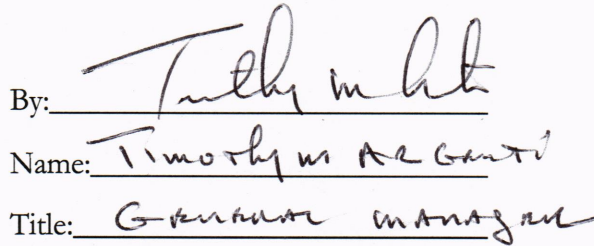 By:
Name: Timothy M
Title: General Manager